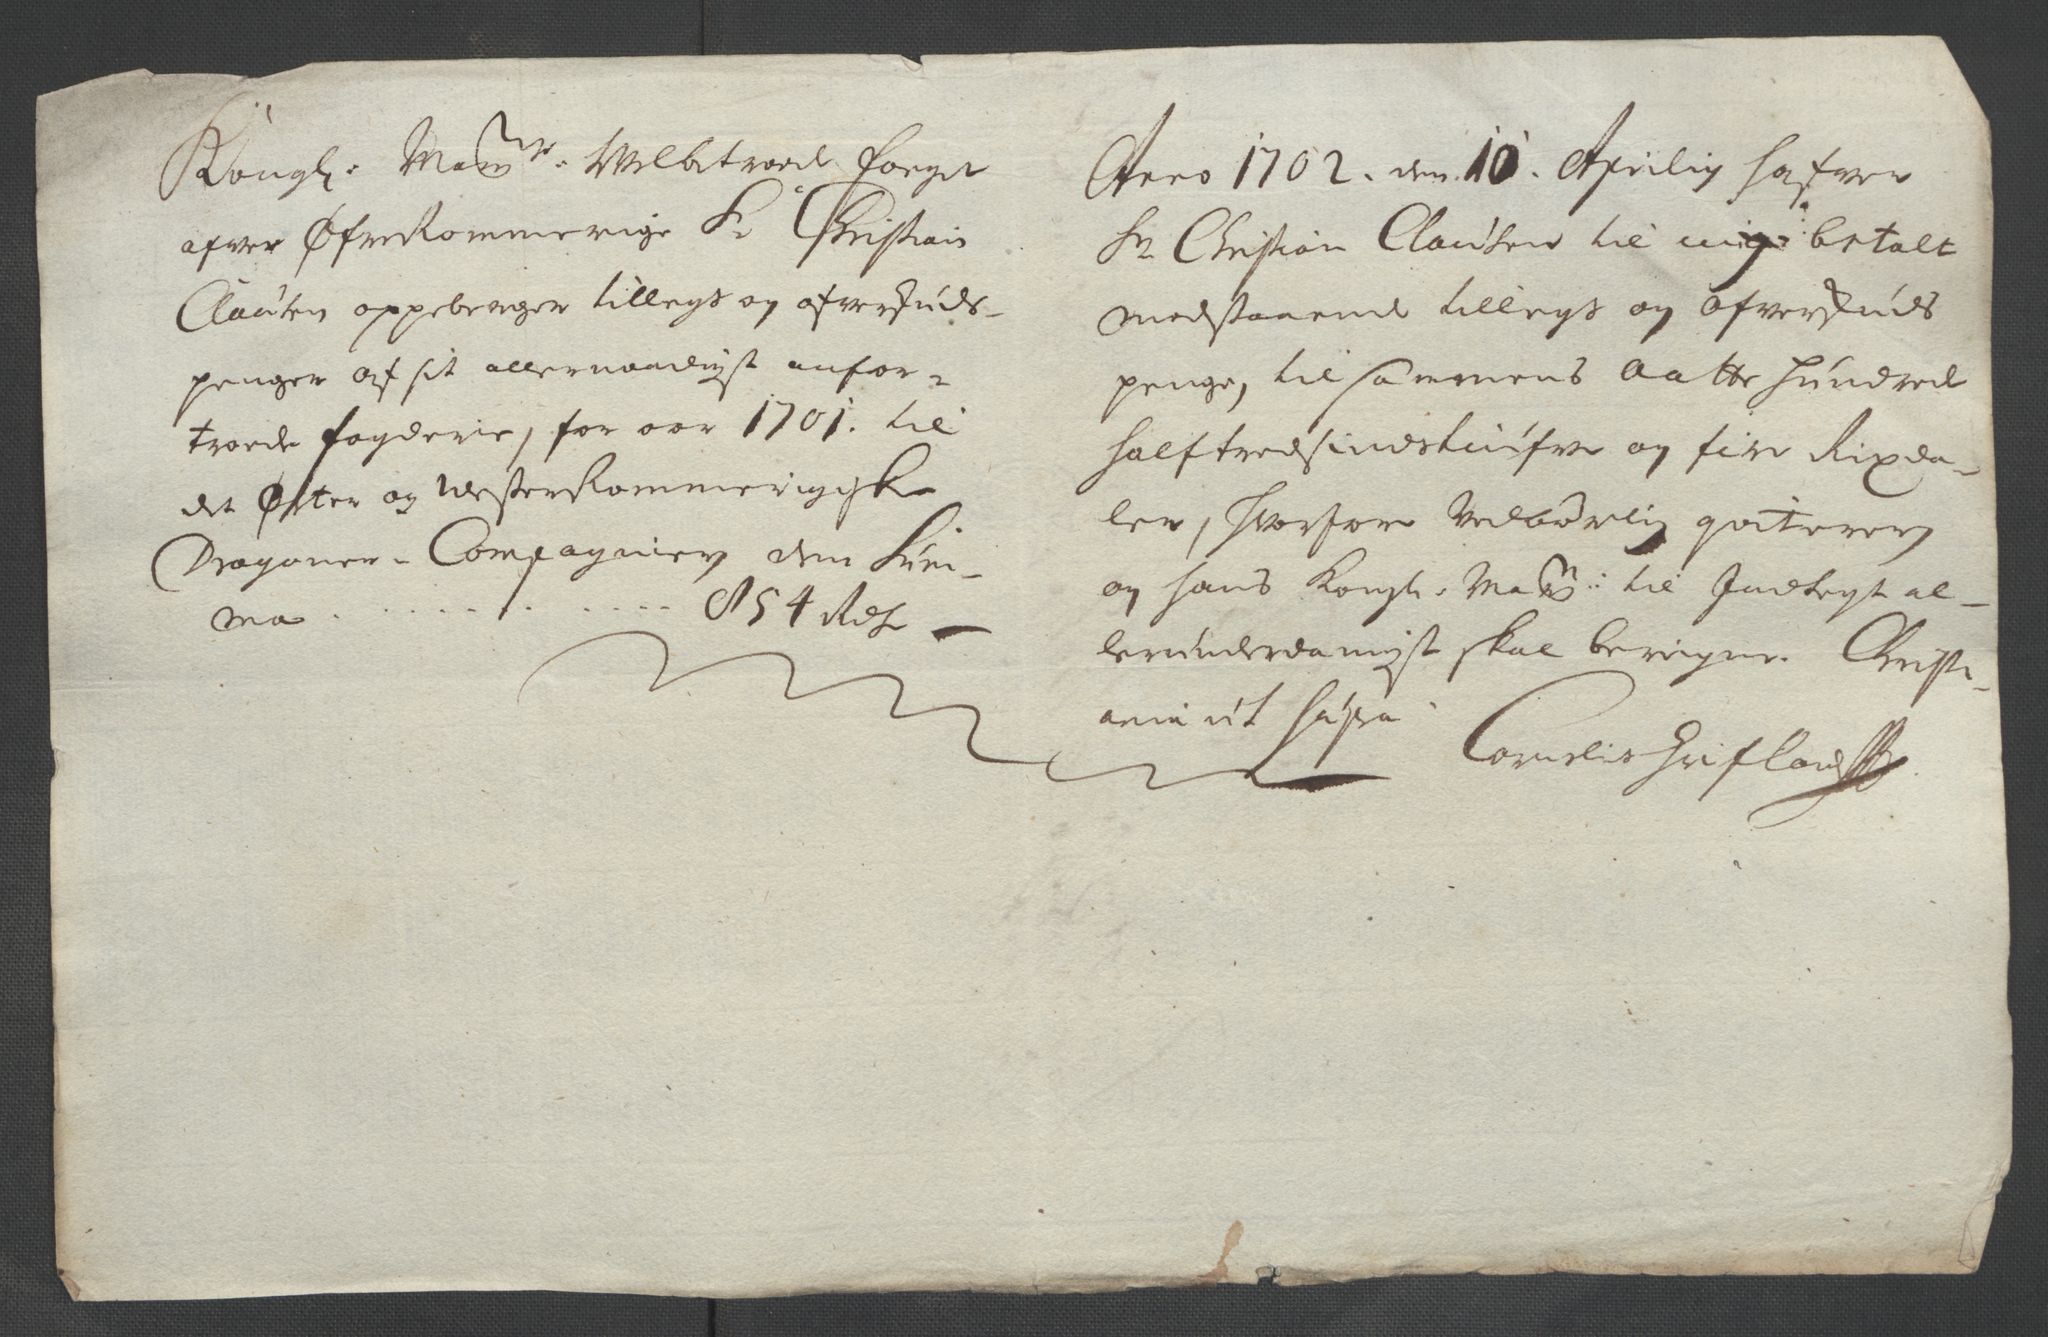 Kongl. Maÿtz. Velbetroede Foegit
ofver Øfre Rommerige Sr. Christian
Clausen oppeberger tillegs og ofverskuds-
penger af sit allernaadigst anfor-
troede fogderie, for aar 1701. til
det Øster og Westerrommerigiske
Dragoner-Compagnier, dem Sum-
ma . . . . . . . . . . 854 Rdr
Anno 1702. den 10. Aprilis hafver
Sr. Christian Clausen til mig betalt
modstaaende tillegs og ofverskuds
penge, tilsammens Aatte Hundred
halftredsindstiufve og fire Rixda-
ler, Hvorfore Vedbørlig qviterer,
og hans Kongl. Maÿtz: til Indtegt al-
lerunderdanigst skal beregne. Christi-
ania ut supra
Cornelis Grifland